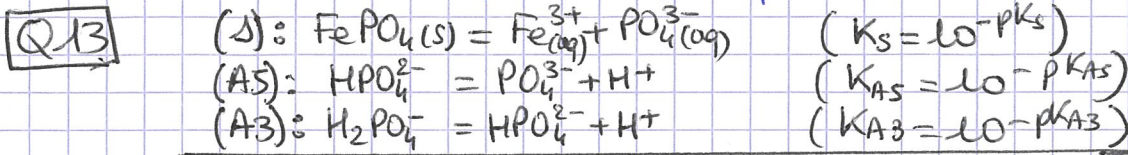 Q13 (s): FePO₄(s) = Fe³⁺(aq) + PO₄³⁻(aq) (Ks = 10^-pKs)
(A5): HPO₄²⁻ = PO₄³⁻ + H⁺ (KA5 = 10^-pKA5)
(A3): H₂PO₄⁻ = HPO₄²⁻ + H⁺ (KA3 = 10^-pKA3)